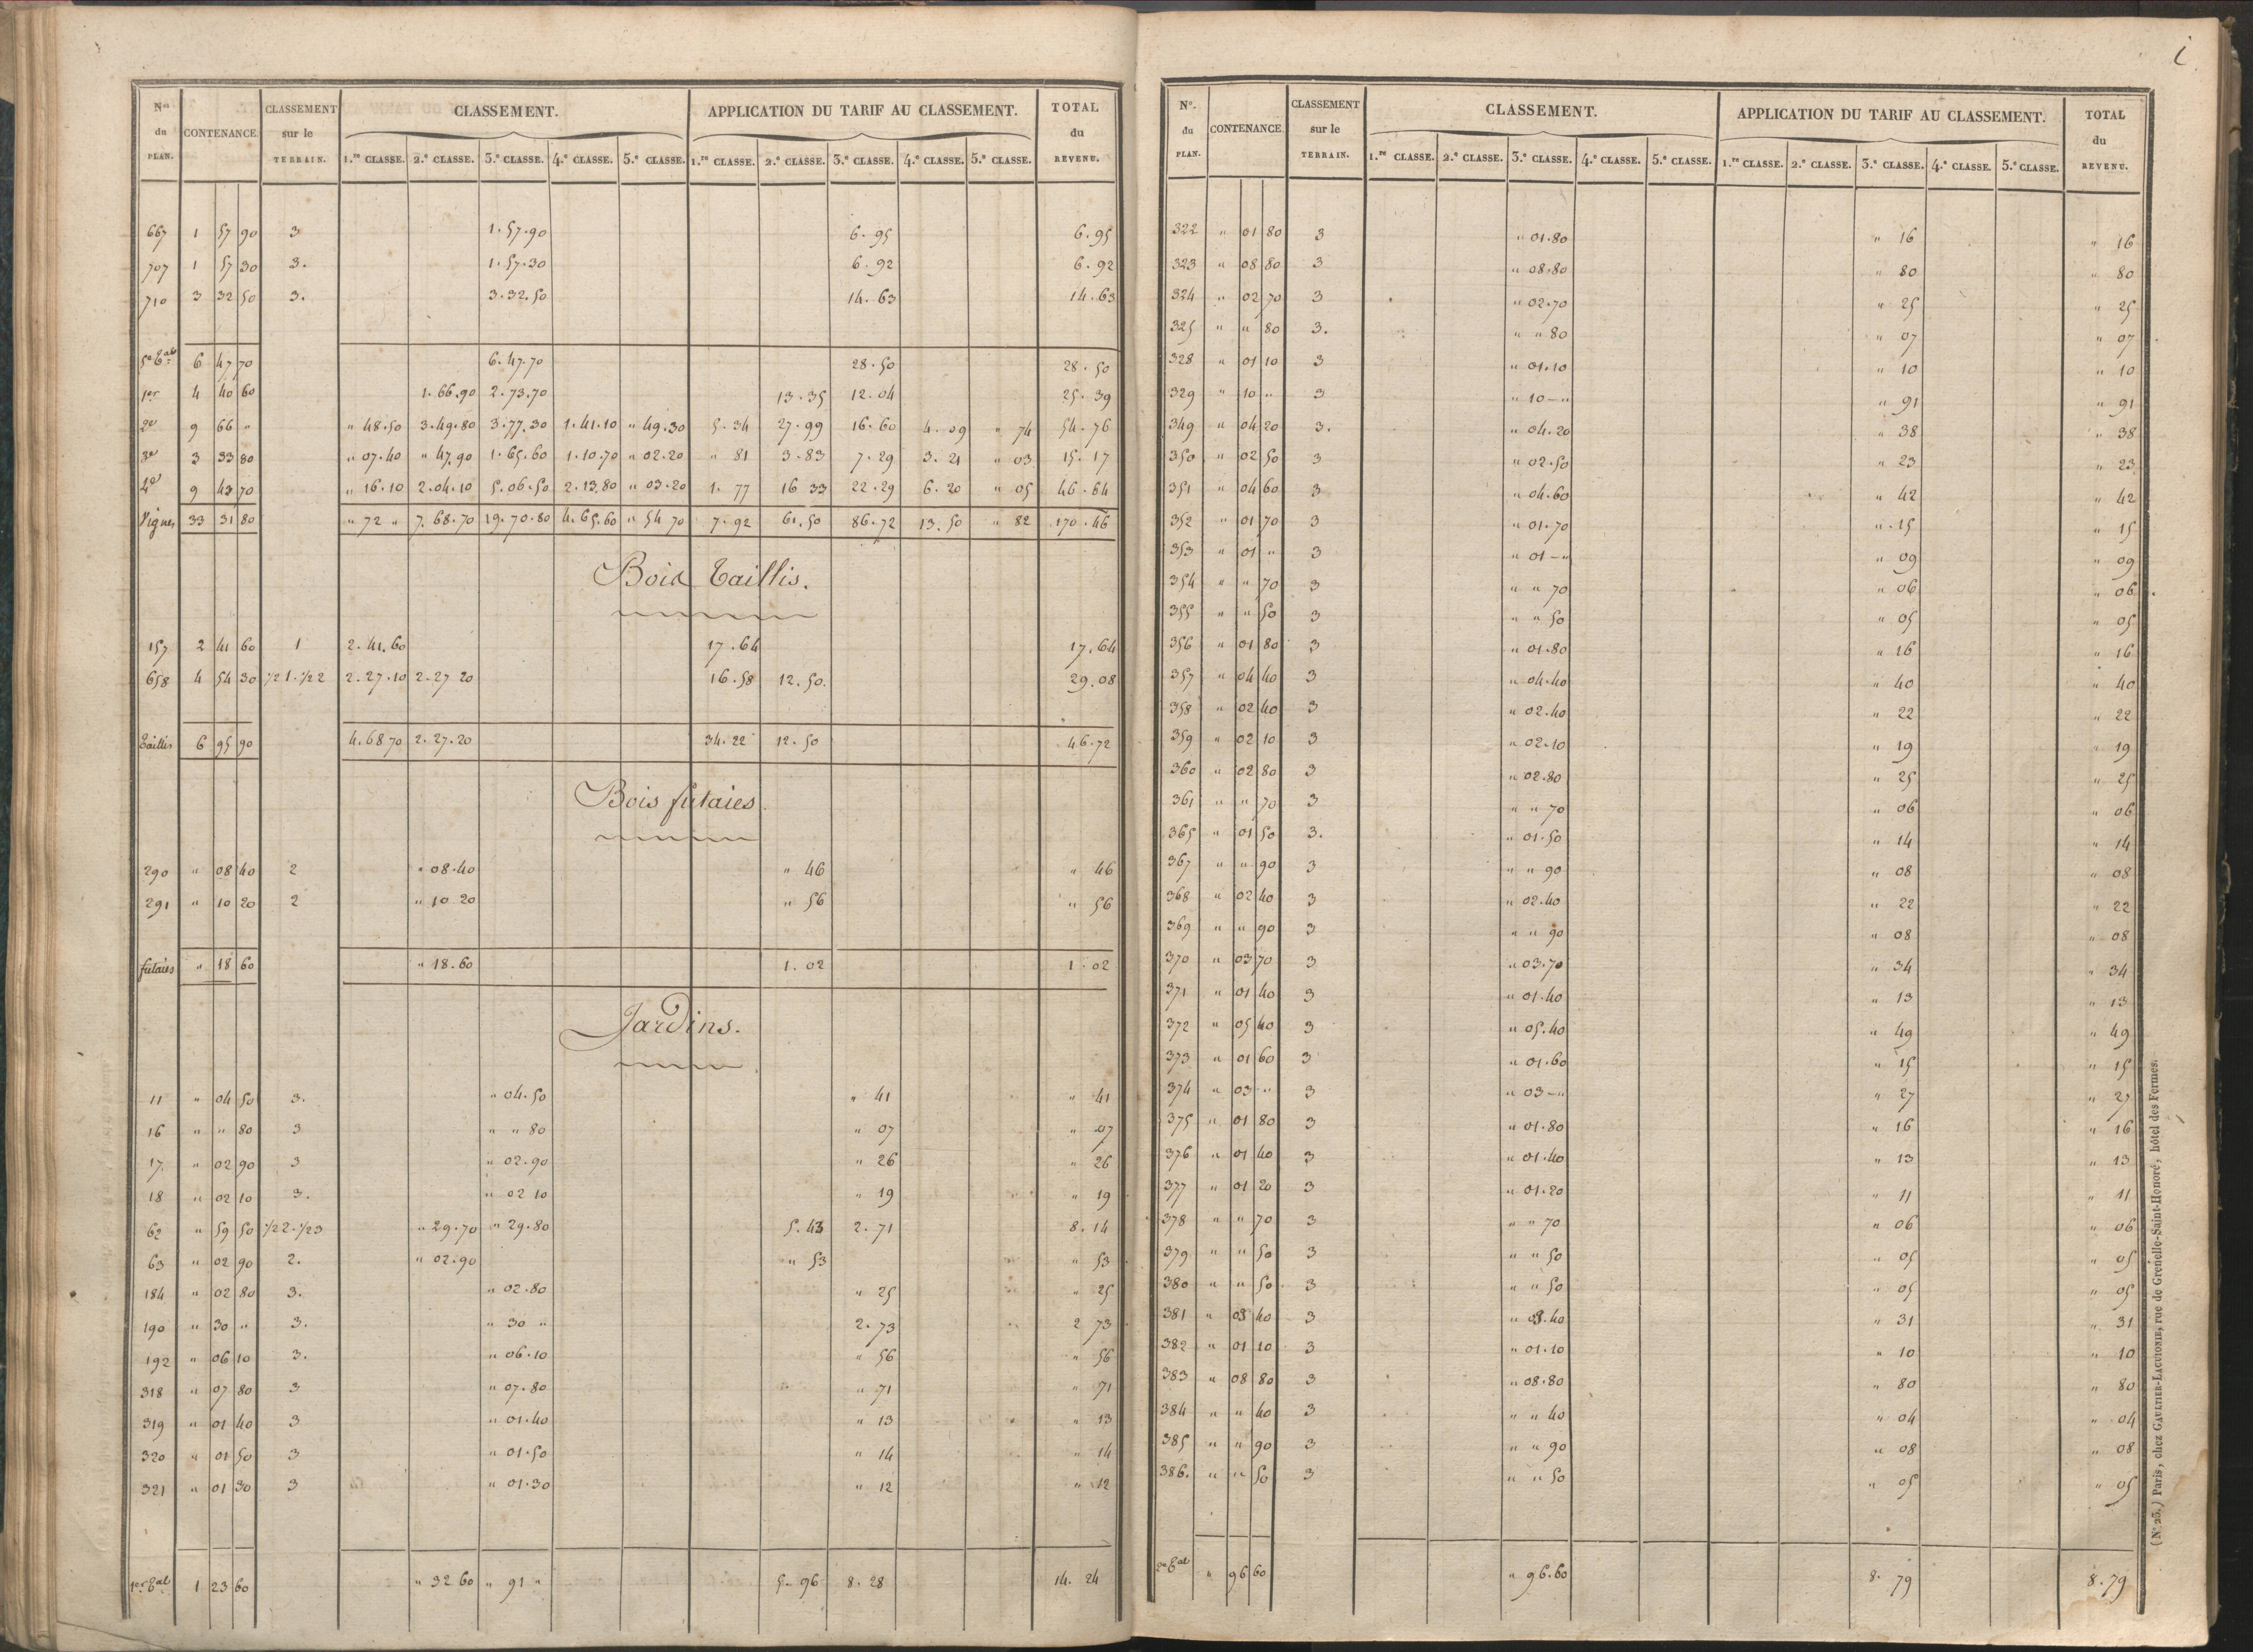 i
Nos du PLAN. CONTENANCE. CLASSEMENT sur le TERRAIN. CLASSEMENT. APPLICATION DU TARIF AU CLASSEMENT. TOTAL du REVENU.
1.re CLASSE. 2.e CLASSE. 3.e CLASSE. 4.e CLASSE. 5.e CLASSE. 1.re CLASSE. 2.e CLASSE. 3.e CLASSE. 4.e CLASSE. 5.e CLASSE.
667 1 57 90 3 1.57.90 6.95 6.95
707 1 57 30 3. 1.57.30 6.92 6.92
710 3 32 50 3. 3.32.50 14.63 14.63
5e Eal 6 47 70 6.47.70 28.50 28.50
1er 4 40 60 1.66.90 2.73.70 13.35 12.04 25.39
2e 9 66 " " 48.50 3.49.80 3.77.30 1.41.10 " 49.30 5.34 27.99 16.60 4.09 " 74 54.76
3e 3 33 80 " 07.40 " 47.90 1.65.60 1.10.70 " 02.20 " 81 3.83 7.29 3.21 " 03 15.17
4e 9 43 70 " 16.10 2.04.10 5.06.50 2.13.80 " 03.20 1.77 16 33 22.29 6.20 " 05 46.64
Vignes 33 31 80 " 72 " 7.68.70 19.70.80 4.65.60 " 54 70 7.92 61.50 86.72 13.50 " 82 170.46
Bois Taillis.
157 2 41 60 1 2.41.60 17.64 17.64
658 4 54 30 1/2 1.1/2 2 2.27.10 2.27 20 16.58 12.50. 29.08
Taillis 6 95 90 4.68 70 2.27.20 34.22 12.50 46.72
Bois futaies.
290 " 08 40 2 " 08.40 " 46 " 46
291 " 10 20 2 " 10 20 " 56 " 56
futaies " 18 60 " 18.60 1.02 1.02
Jardins.
11 " 04 50 3. " 04.50 " 41 " 41
16 " " 80 3 " " 80 " 07 " 07
17. " 02 90 3 " 02.90 " 26 " 26
18 " 02 10 3. " 02 10 " 19 " 19
62 " 59 50 1/2 2.1/2 3 " 29.70 " 29.80 5.43 2.71 8.14
63 " 02 90 2. " 02.90 " 53 " 53
184 " 02 80 3. " 02.80 " 25 " 25
190 " 30 " 3. " 30 " 2.73 2 73
192 " 06 10 3. " 06.10 " 56 " 56
318 " 07 80 3 " 07.80 " 71 " 71
319 " 01 40 3 " 01.40 " 13 " 13
320 " 01 50 3 " 01.50 " 14 " 14
321 " 01 30 3 " 01.30 " 12 " 12
1er Eal 1 23 60 " 32 60 " 91 " 5.96 8.28 14.24
Nos du PLAN. CONTENANCE. CLASSEMENT sur le TERRAIN. CLASSEMENT. APPLICATION DU TARIF AU CLASSEMENT. TOTAL du REVENU.
1.re CLASSE. 2.e CLASSE. 3.e CLASSE. 4.e CLASSE. 5.e CLASSE. 1.re CLASSE. 2.e CLASSE. 3.e CLASSE. 4.e CLASSE. 5.e CLASSE.
322 " 01 80 3 " 01.80 " 16 " 16
323 " 08 80 3 " 08.80 " 80 " 80
324 " 02 70 3 " 02.70 " 25 " 25
325 " " 80 3. " " 80 " 07 " 07
328 " 01 10 3 " 01.10 " 10 " 10
329 " 10 " 3 " 10 - " " 91 " 91
349 " 04 20 3. " 04.20 " 38 " 38
350 " 02 50 3 " 02.50 " 23 " 23
351 " 04 60 3 " 04.60 " 42 " 42
352 " 01 70 3 " 01.70 " 15 " 15
353 " 01 " 3 " 01 - " " 09 " 09
354 " " 70 3 " " 70 " 06 " 06
355 " " 50 3 " " 50 " 05 " 05
356 " 01 80 3 " 01.80 " 16 " 16
357 " 04 40 3 " 04.40 " 40 " 40
358 " 02 40 3 " 02.40 " 22 " 22
359 " 02 10 3 " 02.10 " 19 " 19
360 " 02 80 3 " 02.80 " 25 " 25
361 " " 70 3 " " 70 " 06 " 06
365 " 01 50 3. " 01.50 " 14 " 14
367 " " 90 3 " " 90 " 08 " 08
368 " 02 40 3 " 02.40 " 22 " 22
369 " " 90 3 " " 90 " 08 " 08
370 " 03 70 3 " 03.70 " 34 " 34
371 " 01 40 3 " 01.40 " 13 " 13
372 " 05 40 3 " 05.40 " 49 " 49
373 " 01 60 3 " 01.60 " 15 " 15
374 " 03 " 3 " 03 - " " 27 " 27
375 " 01 80 3 " 01.80 " 16 " 16
376 " 01 40 3 " 01.40 " 13 " 13
377 " 01 20 3 " 01.20 " 11 " 11
378 " " 70 3 " " 70 " 06 " 06
379 " " 50 3 " " 50 " 05 " 05
380 " " 50 3 " " 50 " 05 " 05
381 " 03 40 3 " 03.40 " 31 " 31
382 " 01 10 3 " 01.10 " 10 " 10
383 " 08 80 3 " 08.80 " 80 " 80
384 " " 40 3 " " 40 " 04 " 04
385 " " 90 3 " " 90 " 08 " 08
386. " " 50 3 " " 50 " 05 " 05
2e Eal " 96 60 " 96.60 8.79 8.79
(No 25.) Paris, chez GAULTIER-LAGUIONIE, rue de Grenelle-Saint-Honoré, hôtel des Fermes.